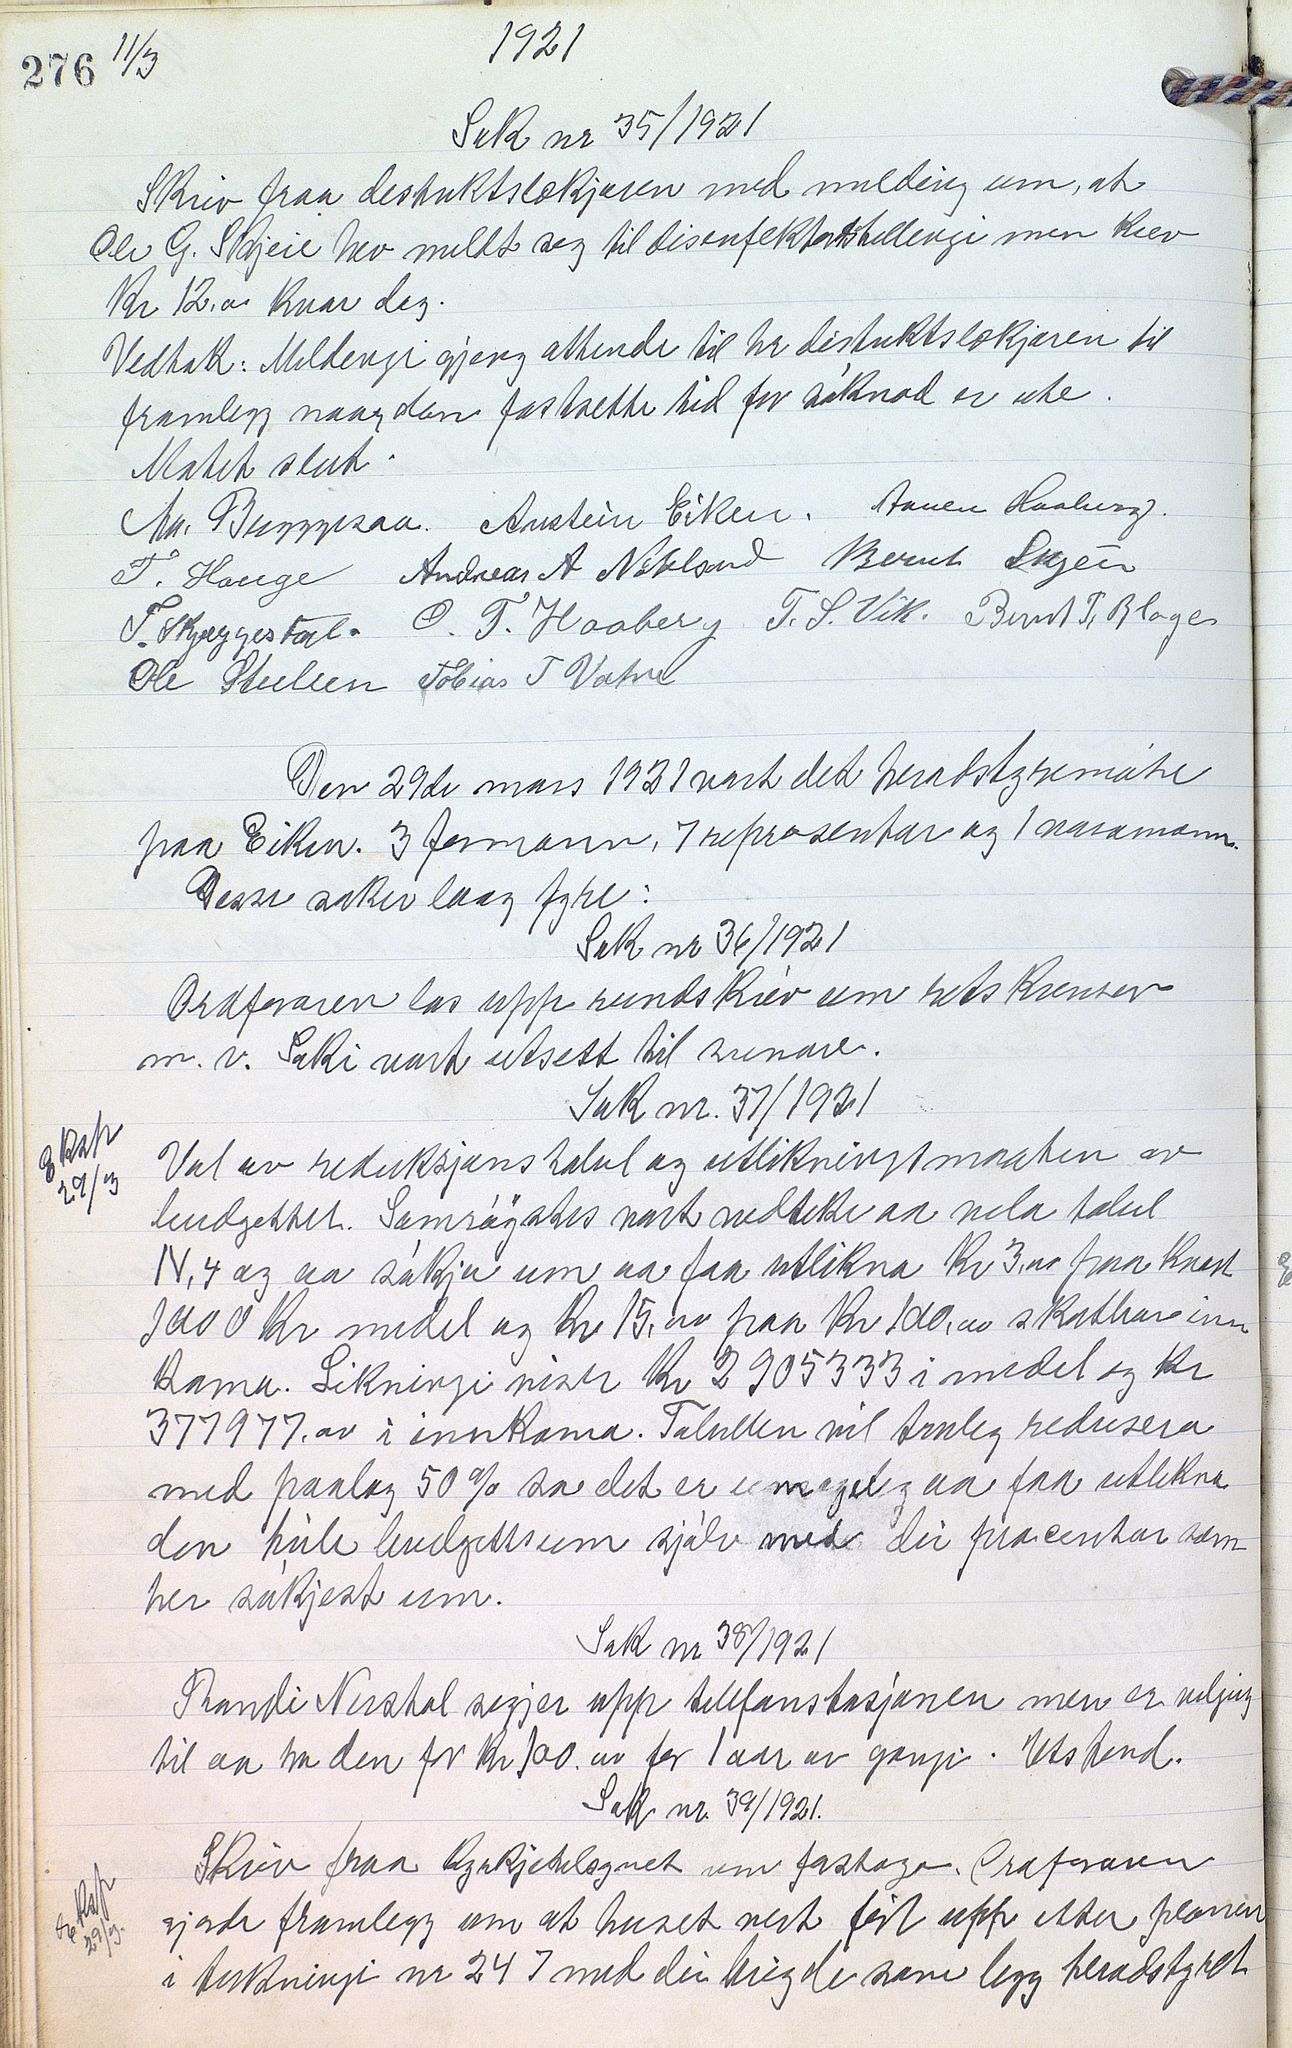 276 11/3
1921
Sak nr 35/1921
Skriv fraa destriktslækjaren med melding um, at
Ole G. Skjeie hev meldt seg til disenfektørstellingi men krev
Kr 12,00 kvar dag.
Vedtak: Meldingi gjeng attende til hr distriktslækjaren til
framlegg naar den fastsette tid for søknad er ute.
Møtet slut.
Austein Eiken. Haaberg.
T. Hauge Andreas A Bernt Skjeie
T. Skjeggestal. O. T. Haaberg T. S. Vik. Bernt T.
Ole Tobias T Vatne
Den 29de mars 1921 vart det heradstyremøte
paa Eiken. 3 formenn, 7 representar og 1 varamann.
Desse saker laag fyre:
Sak nr 36/1921
Ordføraren las upp rundskriv um
m. v. Saki vart utsett til seinare.
Sak nr. 37/1921
Eksp
29/3
Val av reduksjonstabel og utlikningsmaaten av
budgettet. Samrøystes vart vedteke aa velja tabel
IV, 4 og aa søkja um aa faa utlikna Kr 3,00 paa kvart
1000 Kr midel og Kr 15,00 paa Kr 100,00 skatbar inn
koma. Likningi viser Kr 2905333 i midel og Kr
377977,00 i innkoma. Tabellen vil truleg redusera
med paalag 50% so det er umogeleg aa faa utlikna
den heile budgettsum sjølv med dei procentar som
her søkjest um.
Sak nr 38/1921
Randi Nerstøl segjer upp telefonstasjonen men er viljug
til aa ha den for Kr 100.00 for 1 aar av gongi. Utsend.
Sak nr. 39/1921.
Eksp
29/3.
Skriv fraa Kyrkjetilsynet um Ordføraren
gjorde framlegg um at huset vert ført upp etter planen
i teikningi nr 247 med dei brigde som legg heradstyret